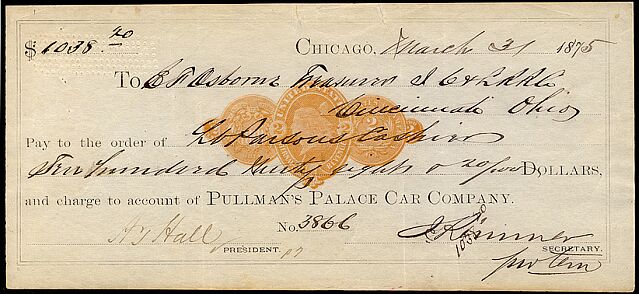 $ 1038.20 CHICAGO, March 31 1875
TO E F Osborn Treasurer I C & L RR Co
Cincinnati Ohio
Pay to the order of Parsons Cashier
Ten hundred thirty eight & 20/100 DOLLARS,
and charge to account of PULLMAN'S PALACE CAR COMPANY.
No. 3866
A S Hall
PRESIDENT. SECRETARY.
pro tem